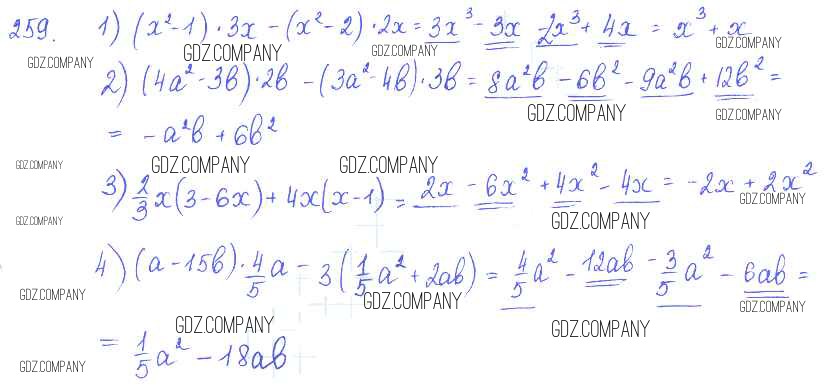 259. 1) (x²-1)·3x - (x²-2)·2x = 3x³ - 3x - 2x³ + 4x = x³ + x
GDZ.COMPANY GDZ.COMPANY GDZ.COMPANY GDZ.COMPANY
2) (4a²-3b)·2b - (3a²-4b)·3b = 8a²b - 6b² - 9a²b + 12b² =
GDZ.COMPANY GDZ.COMPANY
= -a²b + 6b²
GDZ.COMPANY GDZ.COMPANY GDZ.COMPANY
3) 2/3x(3-6x) + 4x(x-1) = 2x - 6x² + 4x² - 4x = -2x + 2x²
GDZ.COMPANY GDZ.COMPANY GDZ.COMPANY
4) (a-15b)·4/5a - 3(1/5a² + 2ab) = 4/5a² - 12ab - 3/5a² - 6ab =
GDZ.COMPANY GDZ.COMPANY GDZ.COMPANY
GDZ.COMPANY GDZ.COMPANY
= 1/5a² - 18ab
GDZ.COMPANY